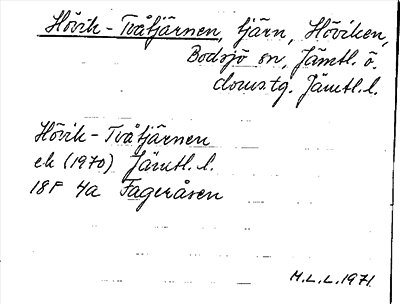 Hövik-Tvåtjärnen, tjärn, Höviken,
Bodsjö sn, Jämtl. ö.
domstg. Jämtl. l.
Hövik-Tvåtjärnen
ek (1970) Jämtl. l.
18F 4a Fageråsen
M.L.L. 1971.